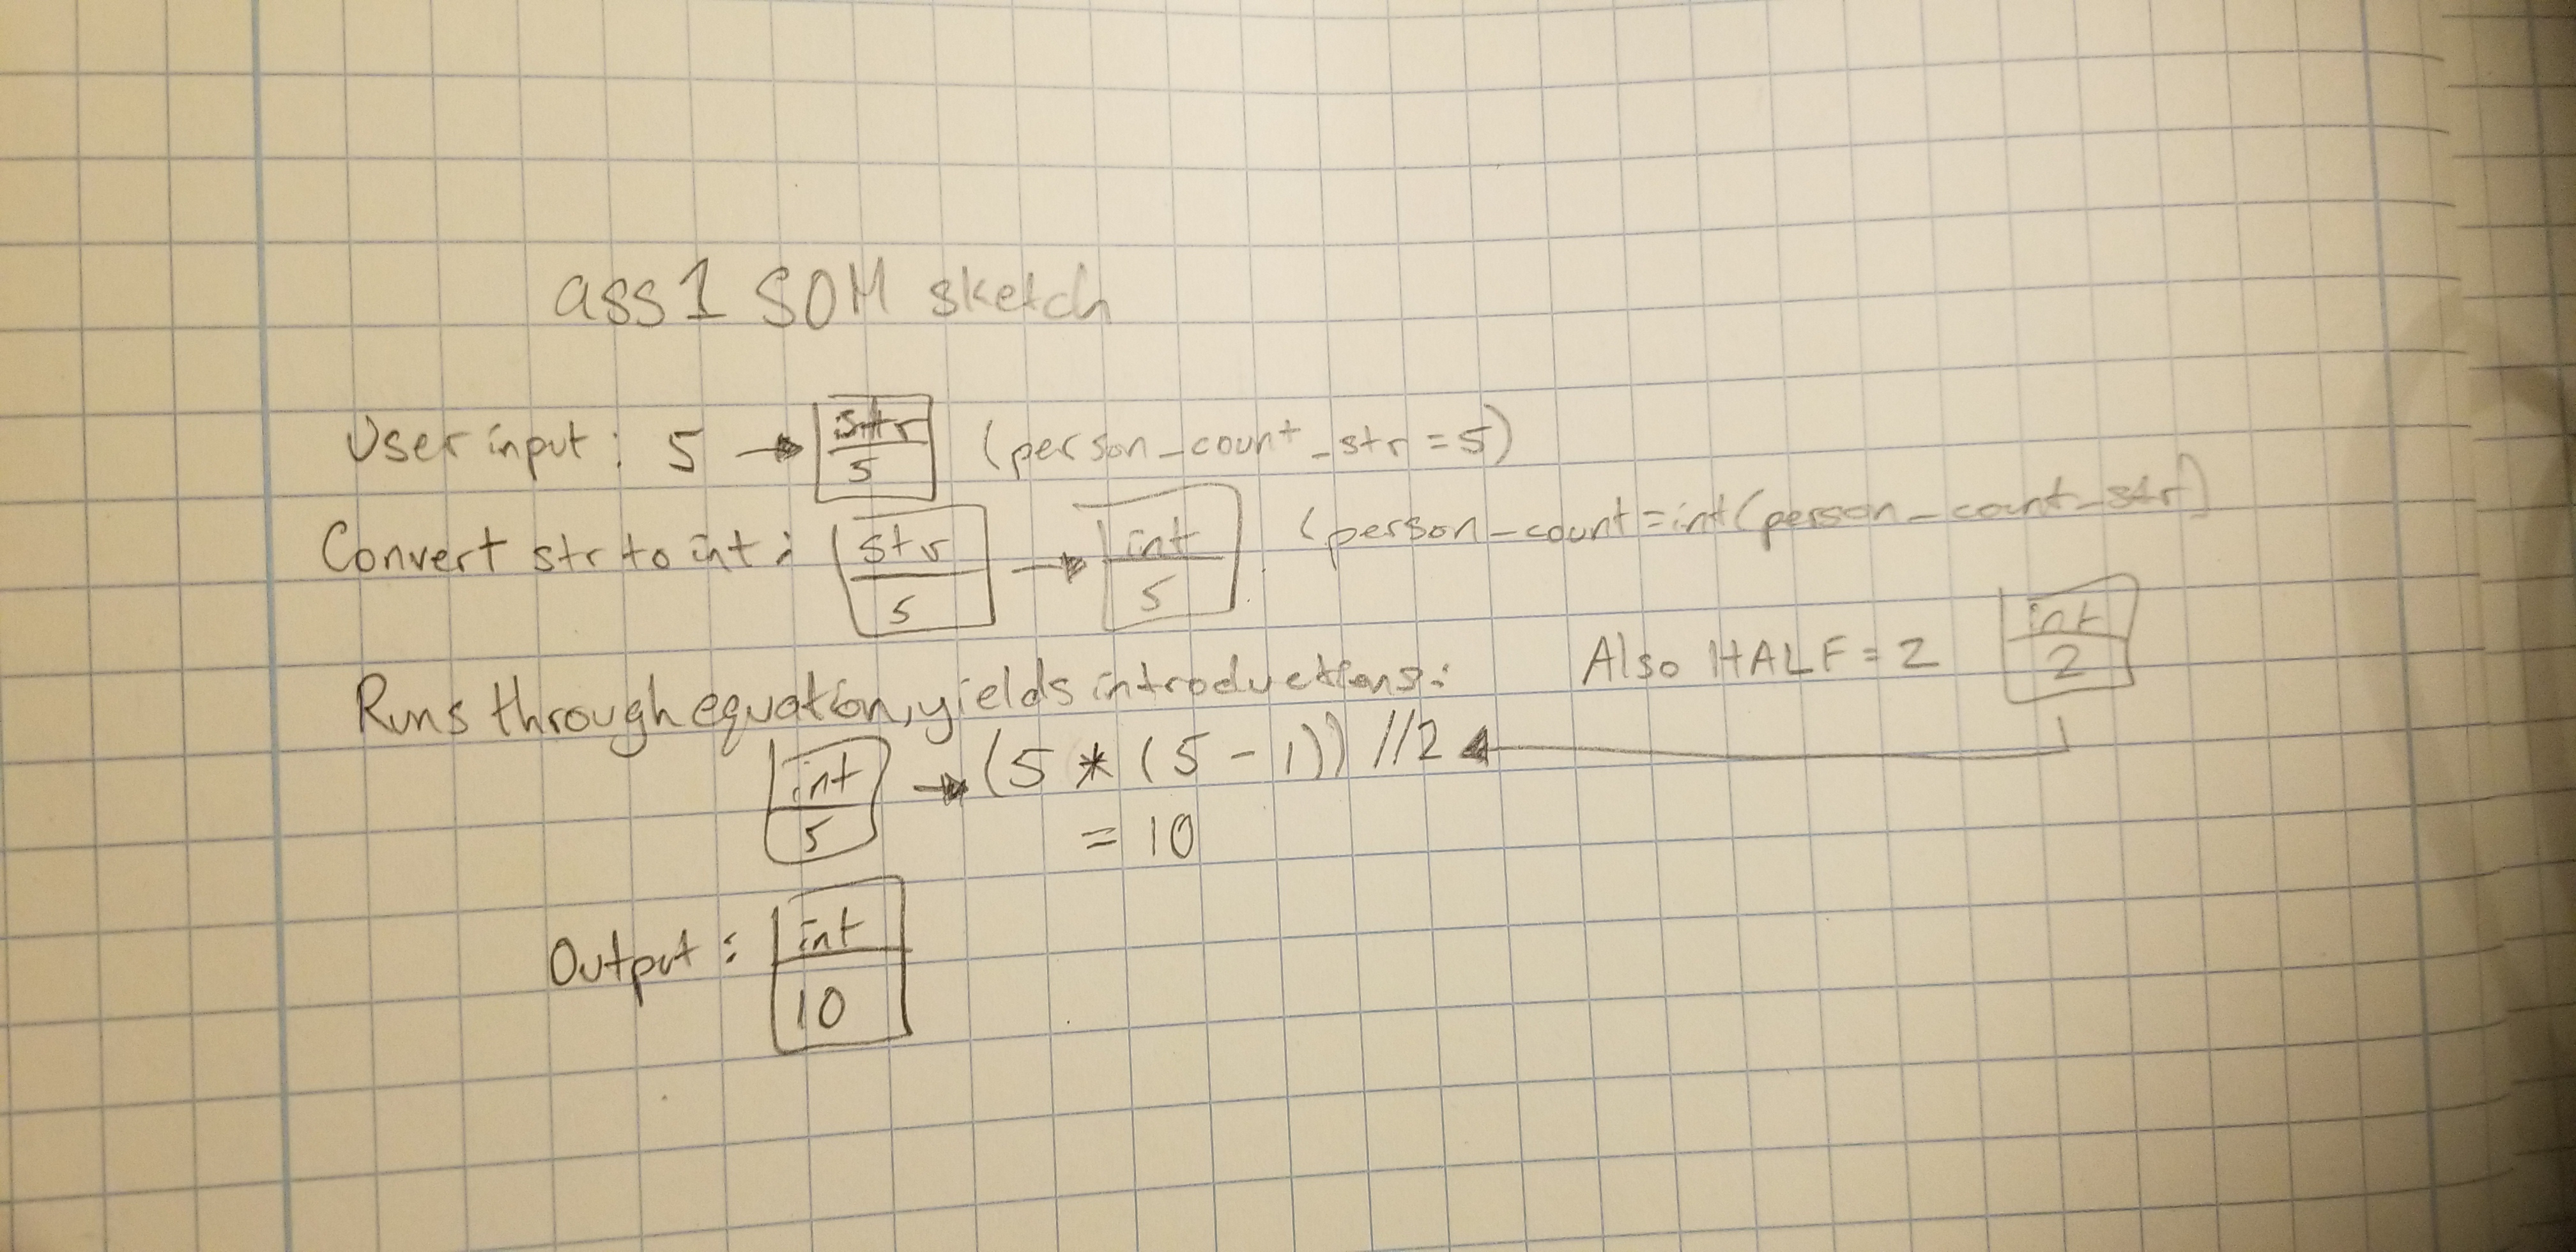 ass1 SOM sketch
User input: 5 → str 5 (person_count_str = 5)
Convert str to int: str 5 → int 5 (person_count = int(person_count_str)
Runs through equation, yields introductions: Also HALF = 2 int 2
int 5 → (5 * (5 - 1)) // 2
= 10
Output: int 10